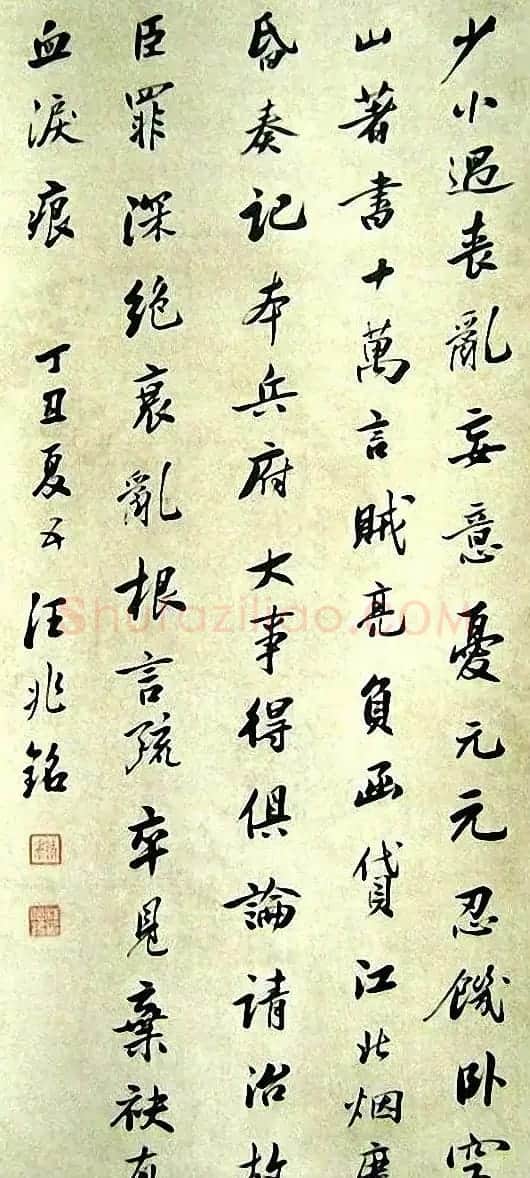 少小遇喪亂妄意憂元元忍饑臥空
山著書十萬言賊亮負函貸江北烟塵
昏奏記本兵府大事得俱論請治故
臣罪深絕衰亂根言疏卒見棄袂有
血淚痕 丁丑夏五 汪兆銘
Shufaziliao.COM